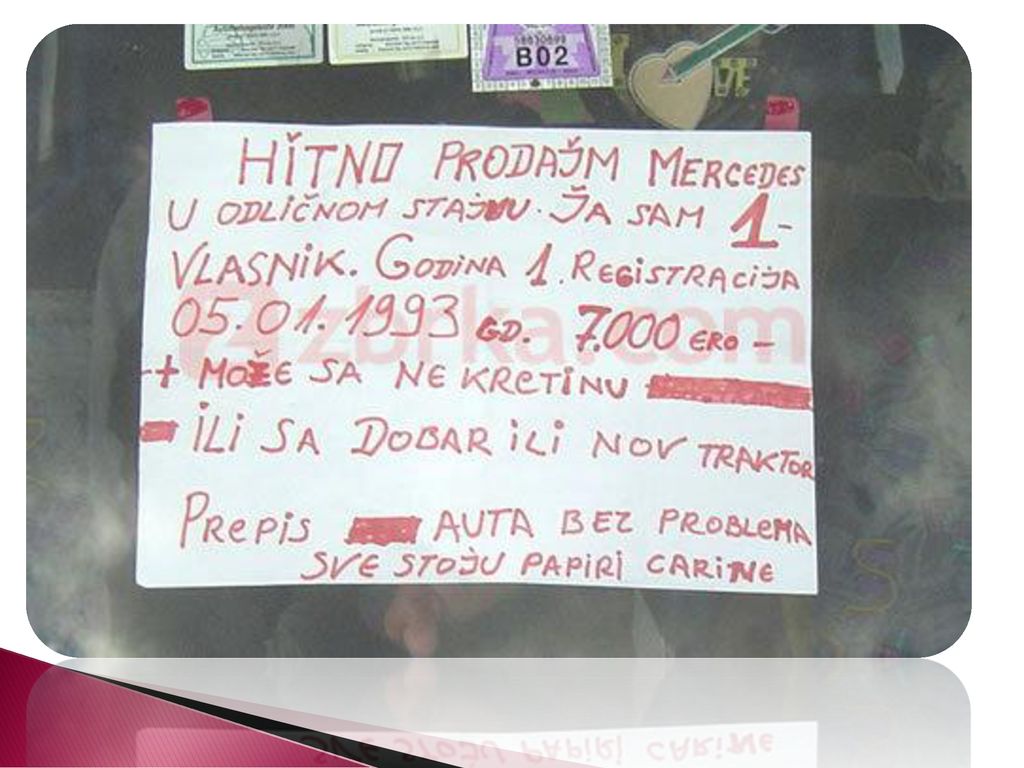 58830699
B02
VE
HİTNO PRODAJM MERCEDES
U ODLIČNOM STAJNU. JA SAM 1-
VLASNIK. GODINA 1. REGISTRACIJA
05.01.1993 GD. 7.000 ERO -
zbrka.com
-+ MOŽE SA NE KRETINU
ILI SA DOBAR ILI NOV TRAKTOR
PREPIS AUTA BEZ PROBLEMA
SVE STOJU PAPIRI CARINE